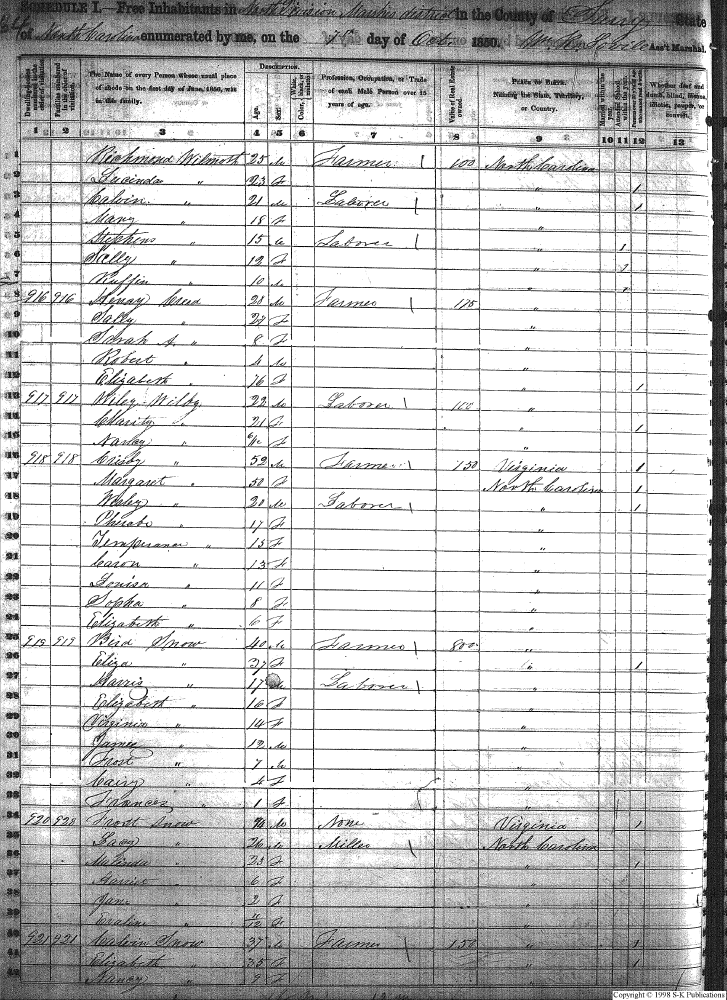 SCHEDULE I.—Free Inhabitants in North Division Marshes district in the County of Surry State
of North Carolina enumerated by me, on the 1st day of Oct 1850. Wm K Ass't Marshal.
Dwelling-houses numbered in the order of visitation.
Families numbered in the order of visitation.
The Name of every Person whose usual place of abode on the first day of June, 1850, was in this family.
Description.
Age.
Sex.
Color,
Profession, Occupation, or Trade of each Male Person over 15 years of age.
Value of Real Estate owned.
Place of Birth. Naming the State, Territory, or Country.
Married within the year.
Whether deaf and dumb, blind, insane, idiotic, pauper, or convict.
1 2 3 4 5 6 7 8 9 10 11 12 13
1 Richmond Wilmoth 25 m Farmer 1 100 North Carolina
2 Lucinda " 23 F " 1
3 Calvin " 21 m Laborer 1 " 1
4 Mary " 18 F "
5 Stephens " 15 m Laborer 1 " 1
6 Sally " 12 F " 1
7 Ruffin " 10 m " 1
8 916 916 Henry Creed 28 m Farmer 1 175 "
9 Sally " 27 F "
10 Sarah A. " 8 F "
11 Robert " 4 m "
12 Elizabeth " 76 F " 1
13 917 917 Wiley Wilby 22 m Laborer 1 100 "
14 Clarity " 21 F " 1
15 Nancy " F "
16 918 918 " 52 m Farmer 1 150 Virginia 1
17 Margaret " 50 F North Carolina 1
18 Wesley " 20 m Laborer 1 " 1
19 Pherabe " 17 F "
20 Temperance " 15 F "
21 Caron " 13 F "
22 Louisa " 11 F "
23 Sopha " 8 F "
24 Elizabeth " 6 F "
25 919 919 Bird Snow 40 m Farmer 1 800 "
26 Eliza " 37 F " 1
27 Harris " 17 m Laborer 1 "
28 Elizabeth " 16 F "
29 Virginia " 14 F "
30 James " 12 m "
31 Frost " 7 m "
32 Cairy " 4 F "
33 Frances " 1 F "
34 920 920 Frost Snow m None Virginia 1
35 " 26 m Miller 1 North Carolina
36 Malinda " 23 F " 1
37 " 6 F "
38 Jane " 2 F "
39 Eveline " 11/12 F "
40 921 921 Calvin Snow 37 m Farmer 1 150 " 1
41 Elizabeth " 35 F " 1
42 Nancy " 9 F "
Copyright © 1998 S-K Publications